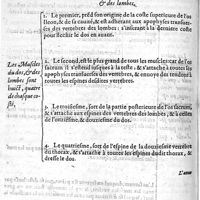 & des lombes,
1. Le premier, prēd son origine de la coste superieure de l'os
Ilion, & de sa cauité, & est adherent aux apophyses transuer-
ses des vertebres des lombes, s'inserant à la derniere coste
pour flechir le dos en auant.
Les Muscles
du dos, & des
lombes sont
huict, quatre
de chaque co-
sté,
2. Le second, est le plus grand de tous les muscles, car de l'os
sacrum il s'estend iusques à la teste, & s'attache à toutes les
apophyses transuerses des vertebres, & enuoye des tendons à
toutes les espines desdites vertebres.
3. Le troisiesme, sort de la partie posterieure de l'os sacrum,
& s'attache aux espines des vertebres des lombes, & à celles
de l'onziesme, & douziesme du dos.
4. Le quatriesme, sort de l'espine de la douziesme vertebre
du thorax, & s'attache à toutes les espines dudit thorax, &
dresse le dos.
L'vne